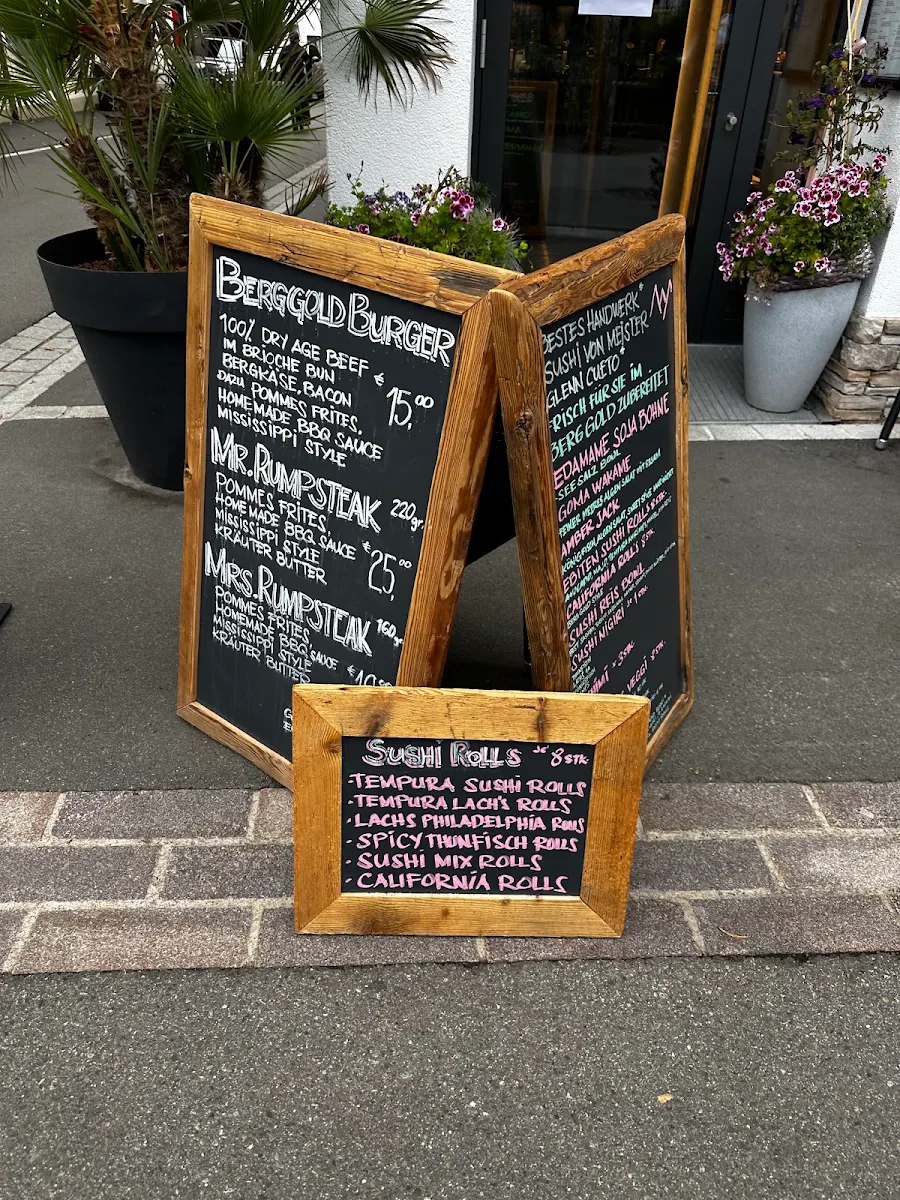 BERGGOLD BURGER
100% DRY AGE BEEF
IM BRIOCHE BUN
BERGKÄSE, BACON
DAZU POMMES FRITES,
HOMEMADE BBQ SAUCE
MISSISSIPPI STYLE
€ 15,00
MR. RUMPSTEAK 220gr.
POMMES FRITES,
HOMEMADE BBQ SAUCE
MISSISSIPPI STYLE
KRÄUTER BUTTER
€ 25,00
MRS. RUMPSTEAK 160gr.
POMMES FRITES,
HOMEMADE BBQ SAUCE
MISSISSIPPI STYLE
KRÄUTER BUTTER
BESTES HANDWERK*
SUSHI VON MEISTER
GLENN CUETO*
FRISCH FÜR SIE IM
BERGGOLD ZUBEREITET
EDAMAME SOJA BOHNE
SEE SALZ BOWL
GOMA WAKAME
AMBER JACK
EBITEN SUSHI ROLLS 8 STK.
CALIFORNIA ROLLS 8 STK.
SUSHI REIS BOWL
SUSHI NIGIRI
VEGGI
SUSHI ROLLS JE 8 STK.
-TEMPURA SUSHI ROLLS
-TEMPURA LACH'S ROLLS
-LACHS PHILADELPHIA ROLLS
-SPICY THUNFISCH ROLLS
-SUSHI MIX ROLLS
-CALIFORNIA ROLLS